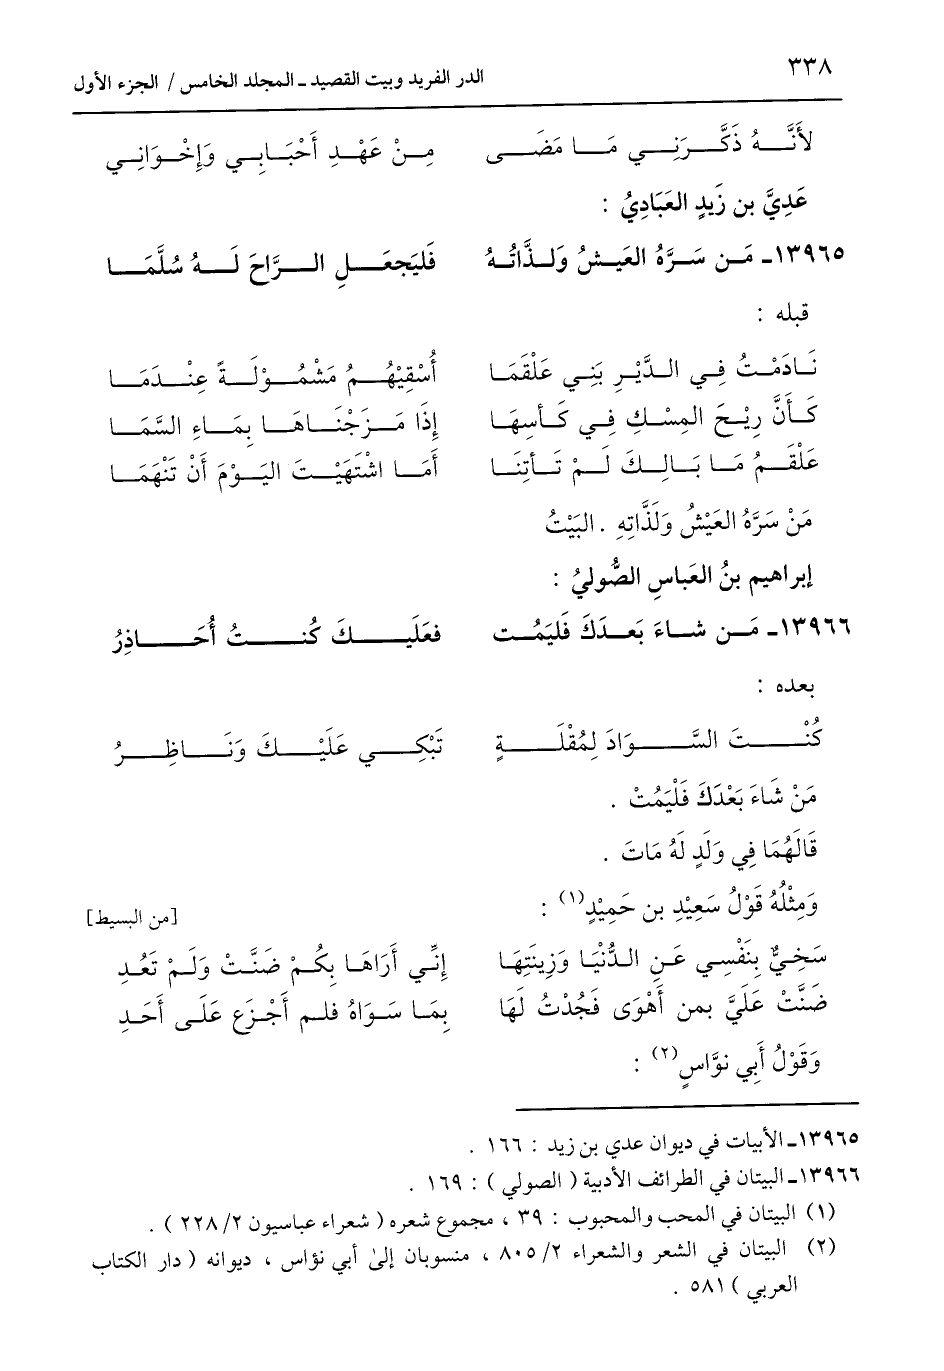 ٣٣٨
الدر الفريد وبيت القصيد ـ المجلد الخامس / الجزء الأول
لأَنَّهُ ذَكَّرَنِي مَا مَضَى مِنْ عَهْدِ أَحْبَابِي وَإِخْوَانِي
عَدِيَّ بن زَيدٍ العَبَادِيُ :
١٣٩٦٥ـ مَن سَرَّهُ العَيشُ وَلذَّاتُهُ فَليَجعَلِ الرَّاحَ لَهُ سُلَّمَا
قبله :
نَادَمْتُ فِي الدَّيْرِ بَنِي عَلْقَمَا أُسْقِيْهُمُ مَشْمُوْلَةً عِنْدَمَا
كَأَنَّ رِيْحَ المِسْكِ فِي كَأسِهَا إِذَا مَزَجْنَاهَا بِمَاءِ السَّمَا
عَلْقَمُ مَا بَالِكَ لَمْ تَأتِنَا أَمَا اشْتَهَيْتَ اليَوْمَ أَنْ تَنْهَمَا
مَنْ سَرَّهُ العَيْشُ وَلَذَّاتِهِ . البَيْتُ
إبراهيم بنُ العَباسِ الصُّوليُ :
١٣٩٦٦ـ مَن شاءَ بَعدَكَ فَليَمُت فعَلَيكَ كُنتُ أُحَاذِرُ
بعده :
كُنْتَ السَّوَادَ لِمُقْلَةٍ تَبْكِي عَلَيْكَ وَنَاظِرُ
مَنْ شَاءَ بَعْدَكَ فَلْيَمُتْ .
قَالَهُمَا فِي وَلَدٍ لَهُ مَاتَ .
وَمِثْلُهُ قَوْلُ سَعِيْدِ بن حَمِيْدٍ(١) : [من البسيط]
سَخِيٌّ بِنَفْسِي عَنِ الدُّنْيَا وَزِينَتِهَا إِنِّي أَرَاهَا بِكُمْ ضَنَّتْ وَلَمْ تَعُدِ
ضَنَّتْ عَلَيَّ بمن أَهْوَى فَجُدْتُ لَهَا بِمَا سَوَاهُ فلم أَجْزَعِ عَلَى أَحَدِ
وَقَوْلُ أَبِي نوَّاسٍ(٢) :
١٣٩٦٥ـ الأبيات في ديوان عدي بن زيد : ١٦٦ .
١٣٩٦٦ـ البيتان في الطرائف الأدبية ( الصولي ) : ١٦٩ .
(١) البيتان في المحب والمحبوب : ٣٩ ، مجموع شعره ( شعراء عباسيون ٢/ ٢٢٨ ) .
(٢) البيتان في الشعر والشعراء ٢/ ٨٠٥ ، منسوبان إلىٰ أبي نؤاس ، ديوانه ( دار الكتاب
العربي ) ٥٨١ .